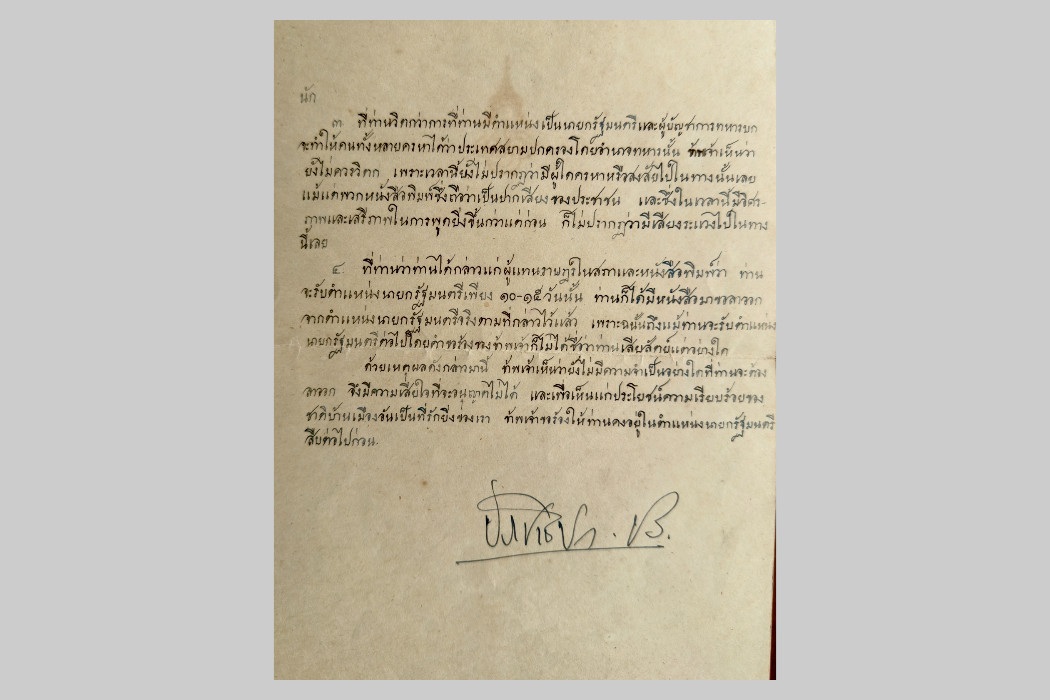 นัก
๓. ที่ท่านวิตกว่าการที่ท่านมีตำแหน่งเป็นนายกรัฐมนตรีและผู้บัญชาการทหารบก
จะทำให้คนทั้งหลายครหาได้ว่าประเทศสยามปกครองโดยอำนาจทหารนั้น ข้าพเจ้าเห็นว่า
ยังไม่ควรวิตก เพราะเวลานี้ยังไม่ปรากฏว่ามีผู้ใดครหาหรือสงสัยไปในทางนั้นเลย
แม้แต่พวกหนังสือพิมพ์ซึ่งถือว่าเป็นปากเสียงของประชาชน และซึ่งในเวลานี้มีอิศร-
ภาพและเสรีภาพในการพูดยิ่งขึ้นกว่าแต่ก่อน ก็ไม่ปรากฏว่ามีเสียงระแวงไปในทาง
นี้เลย
๔. ที่ท่านว่าท่านได้กล่าวแก่ผู้แทนราษฎรในสภาและหนังสือพิมพ์ว่า ท่าน
จะรับตำแหน่งนายกรัฐมนตรีเพียง ๑๐-๑๕ วันนั้น ท่านก็ได้มีหนังสือมาขอลาออก
จากตำแหน่งนายกรัฐมนตรีจริงตามที่กล่าวไว้แล้ว เพราะฉนั้นถึงแม้ท่านจะรับตำแหน่ง
นายกรัฐมนตรีต่อไปโดยคำขอร้องของข้าพเจ้าก็ไม่ได้ชื่อว่าท่านเสียสัตย์แต่อย่างใด
ด้วยเหตุผลดังกล่าวมานี้ ข้าพเจ้าเห็นว่ายังไม่มีความจำเป็นอย่างใดที่ท่านจะต้อง
ลาออก จึงมีความเสียใจที่จะอนุญาตไม่ได้ และเพื่อเห็นแก่ประโยชน์ความเรียบร้อยของ
ชาติบ้านเมืองอันเป็นที่รักยิ่งของเรา ข้าพเจ้าขอร้องให้ท่านคงอยู่ในตำแหน่งนายกรัฐมนตรี
สืบต่อไปก่อน.
ประชาธิปก. ปร.